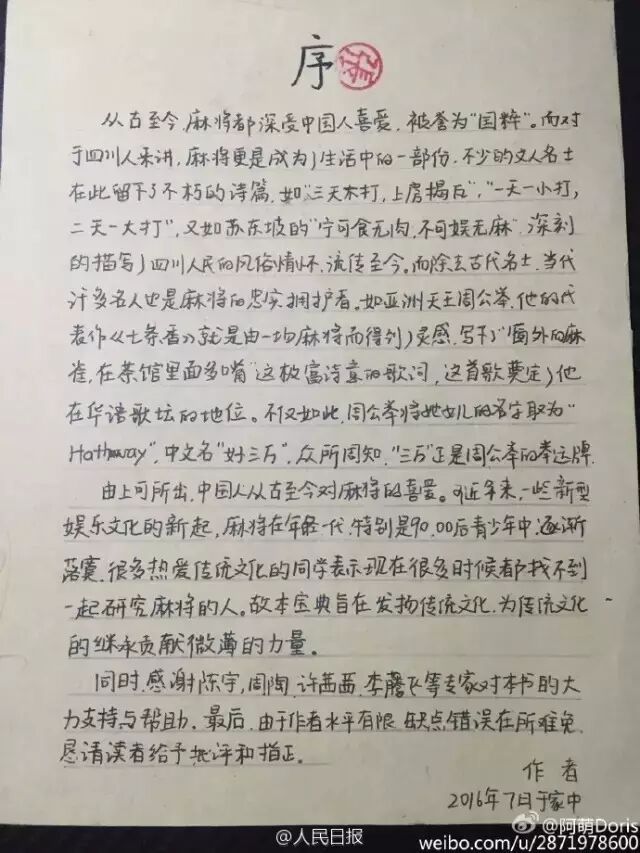 序
从古至今,麻将都深受中国人喜爱,被誉为"国粹"。而对
于四川人来讲,麻将更是成为了生活中的一部份,不少的文人名士
在此留下了不朽的诗篇,如"三天不打,上房揭瓦","一天一小打,
二天一大打",又如苏东坡的"宁可食无肉,不可娱无麻",深刻
的描写了四川人民的风俗情怀,流传至今。而除去古代名士,当代
许多名人也是麻将的忠实拥护者。如亚洲天王周公举,他的代
表作《七条香》就是由一场麻将而得到了灵感,写下了"窗外的麻
雀,在茶馆里面多嘴"这极富诗意的歌词,这首歌奠定了他
在华语歌坛的地位。不仅如此,周公举将她女儿的名字取为"
Hathaway",中文名"好三万",众所周知,"三万"正是周公举的幸运牌.
由上可所出,中国人从古至今对麻将的喜爱。可近年来,一些新型
娱乐文化的新起,麻将在年轻一代,特别是90,00后青少年中,逐渐
落寞,很多热爱传统文化的同学表示现在很多时候都找不到
一起研究麻将的人。故本宝典旨在发扬传统文化,为传统文化
的继承贡献微薄的力量。
同时,感谢陈宇,周陶,许茜茜,李 飞等专家对本书的大
力支持与帮助,最后,由于作者水平有限,缺点错误在所难免,
恳请读者给予批评和指正。
作者
2016年7日于家中
@人民日报
@阿萌Doris
weibo.com/u/2871978600